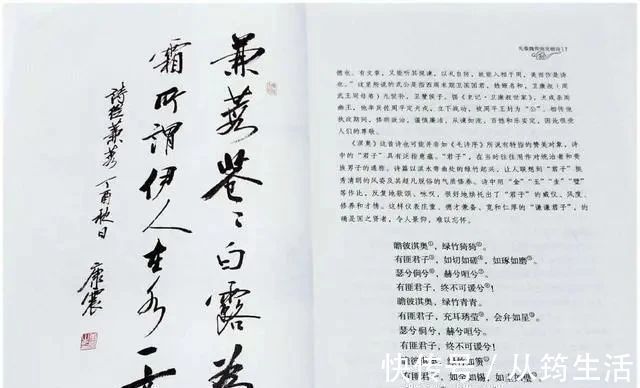 蒹葭苍〻白露為
霜所謂伊人在水一方
詩經蒹葭 丁酉秋日
康震
先秦魏晋南北朝诗 17
德也。有文章，又能听其规谏，以礼自防，故能入相于周，美而作是诗
也。”这里所说的武公是指西周末期卫国国君，姓姬名和，卫康叔（周
武王同母弟）九世孙，卫釐侯子。据《史记·卫康叔世家》，犬戎杀周
幽王，他率兵佐周平定犬戎，立下战功，被周平王封为“公”。相传他
执政期间，修明政治，谨慎廉洁，从谏如流，百姓和乐安定，因此很受
人们的尊敬。
《淇奥》这首诗也可能并非如《毛诗序》所说有特指的赞美对象，诗
中的“君子”具有泛指意蕴。“君子”，在当时往往用作对统治者和贵
族男子的通称。诗篇以淇水弯曲处的绿竹起兴，让人联想到“君子”挺
秀清朗的风姿及其超凡脱俗的气质修养。诗中用“金”“玉”“圭”“璧”
等作比，反复地歌颂、咏叹，很好地烘托出了“君子”的威仪、风度、
修养和才情。这样仪表庄重、德才兼备、宽和仁厚的“谦谦君子”，的
确是国之贤者，令人景仰，难以忘怀。
瞻彼淇奥，绿竹猗猗。
有匪君子，如切如磋，如琢如磨。
瑟兮僩兮，赫兮咺兮。
有匪君子，终不可谖兮！
瞻彼淇奥，绿竹青青。
有匪君子，充耳琇莹，会弁如星。
瑟兮僩兮，赫兮咺兮。
有匪君子，终不可谖兮！
瞻彼淇奥，绿竹如箦。
有匪君子，如金如锡，如圭如璧。
快传号 / 从筠生活